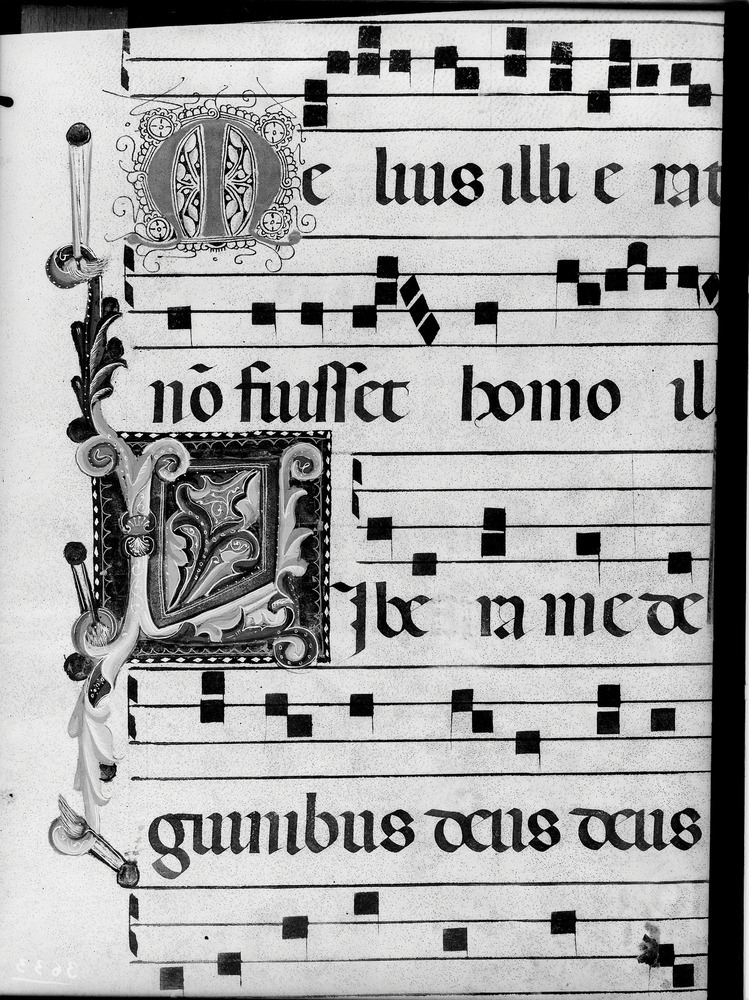 Me lius illi e rat
nō fuisset homo ill
LIbe ra me de
guinibus deus deus
3633